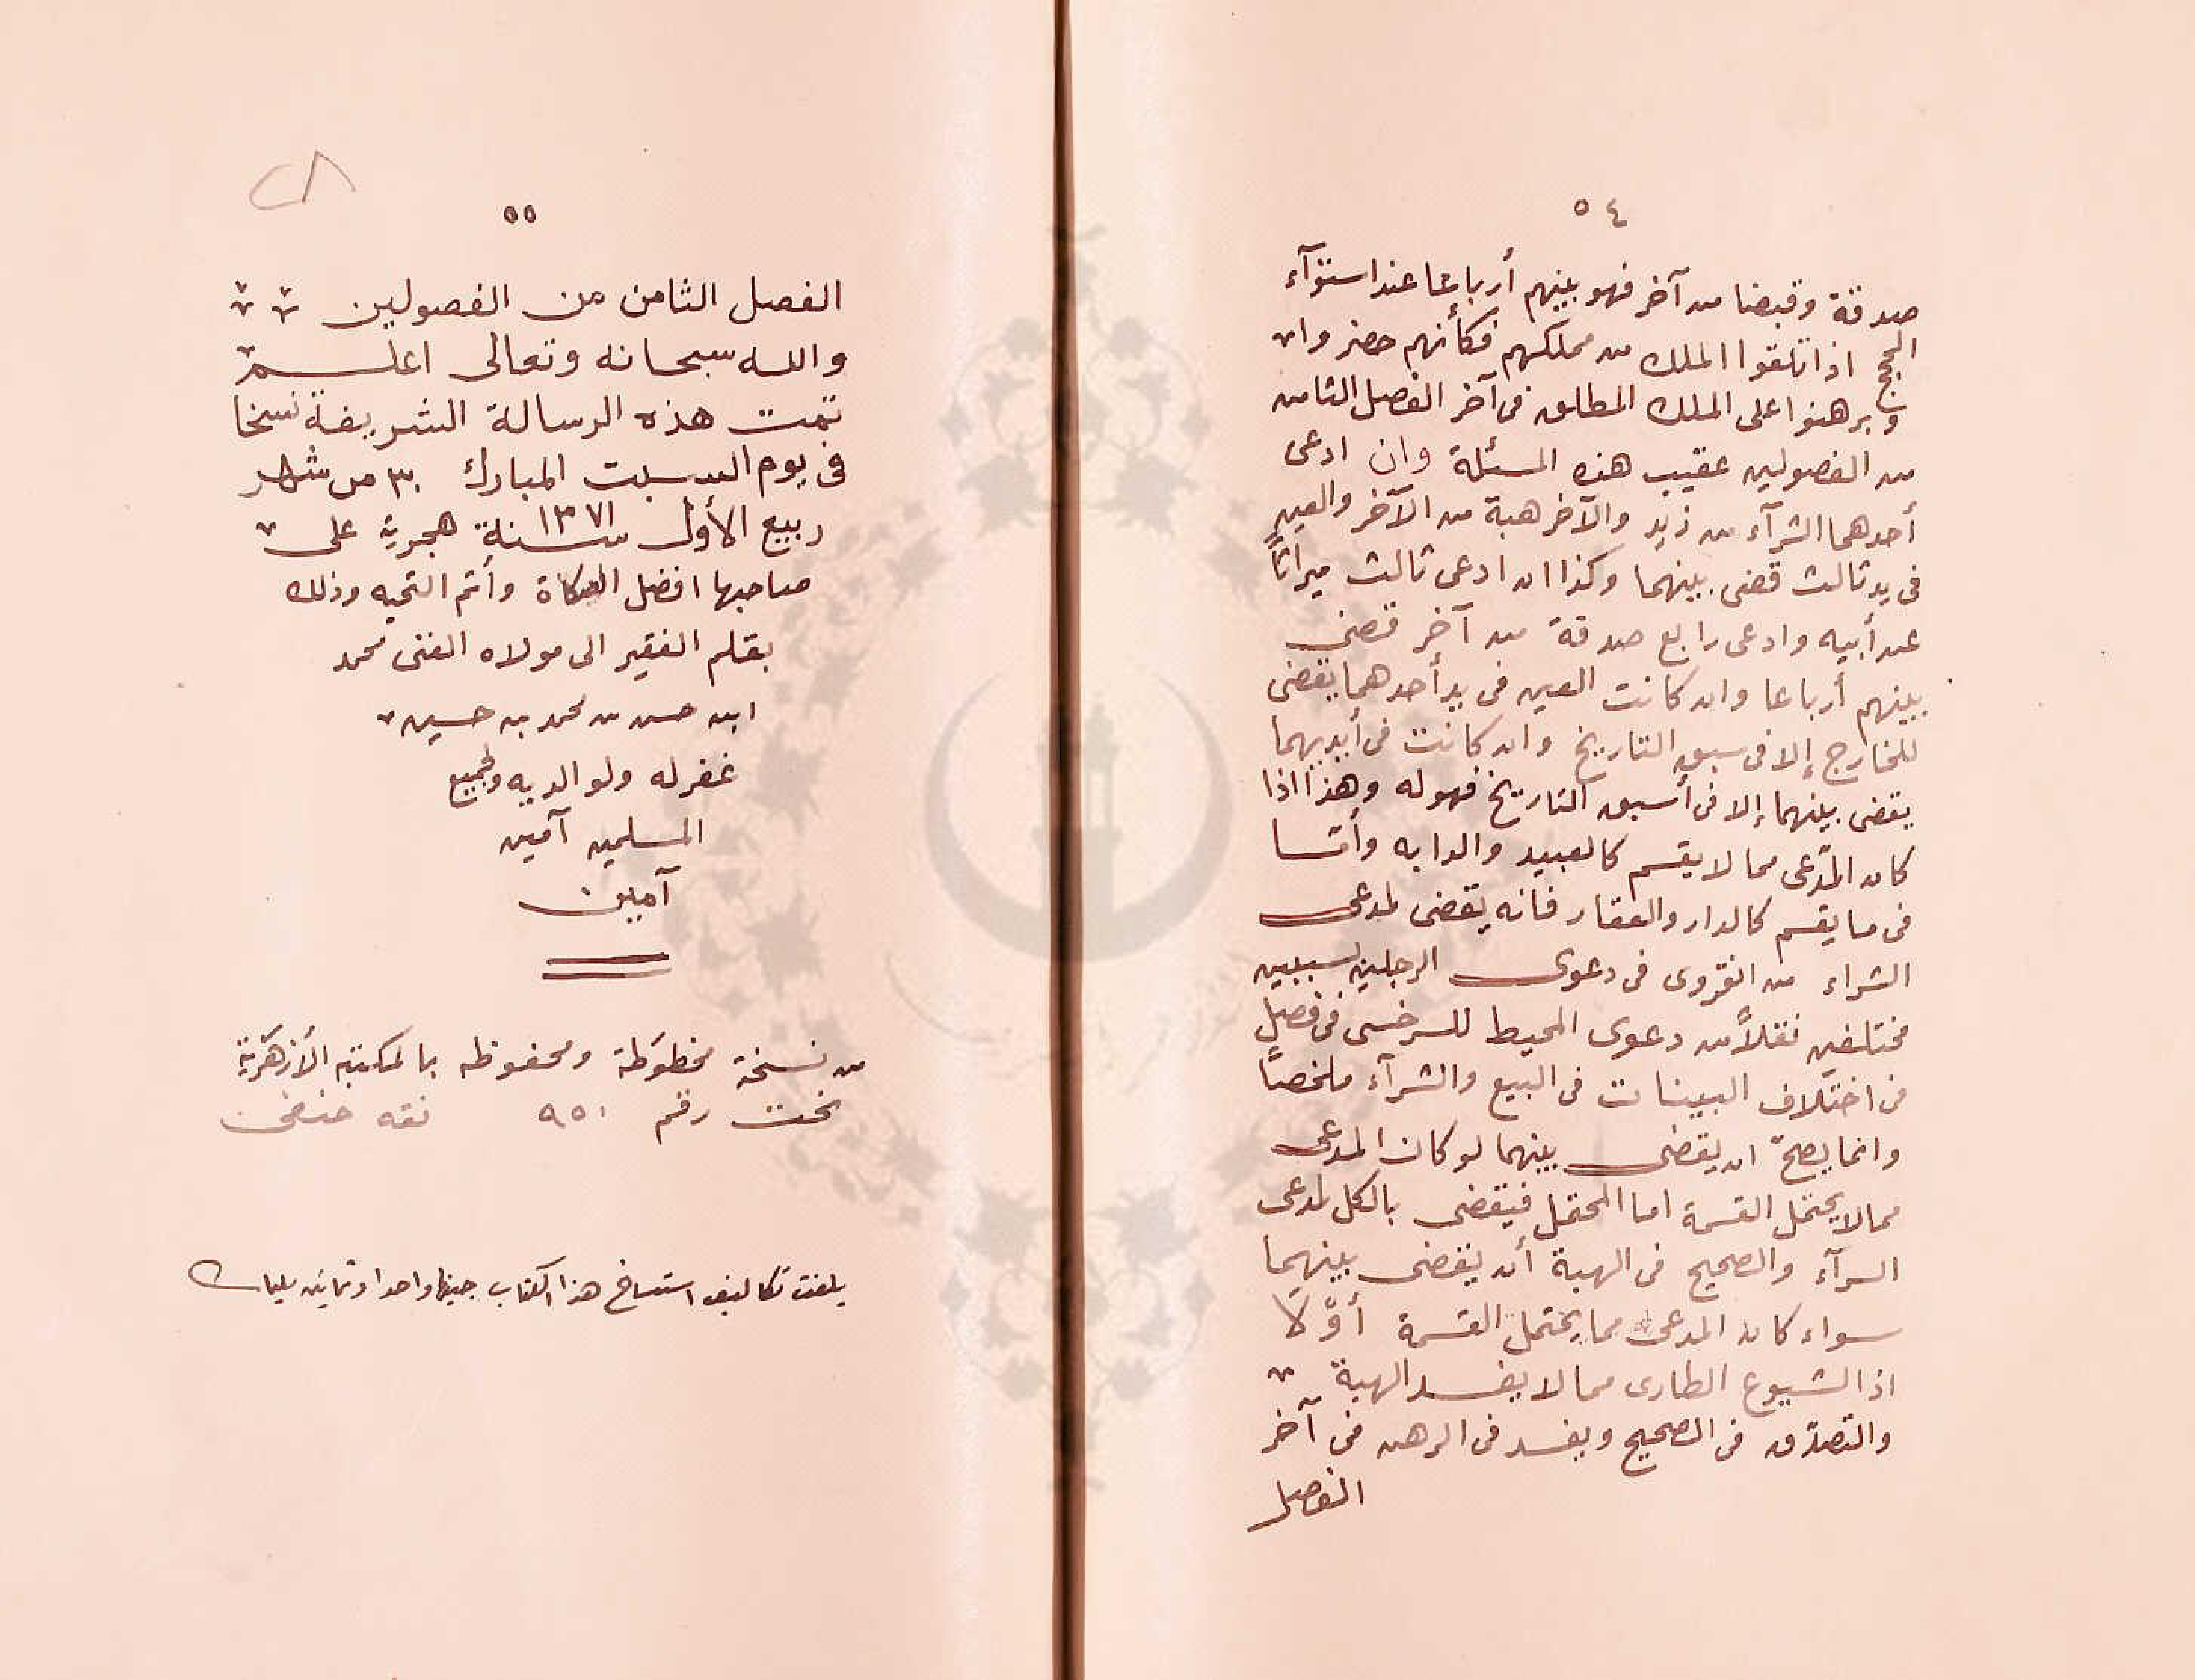 ٥٤
صدقة وقبضا من آخر فهو بينهم أرباعا عند استوآء
الحجج اذا تلقوا الملك من مملكهم فكأنهم حضروا
وبرهنوا على الملك المطلق فى آخر الفصل الثامن
من الفصولين عقيب هذه المسئلة وان ادعى
أحدهما الشرآء من زيد والآخر هبة من الآخر والعين
فى يد ثالث قضى بينهما وكذا ان ادعى ثالث ميراثاً
عن أبيه وادعى رابع صدقة من آخر قضى
بينهم أرباعا وان كانت العين فى يد أحدهما يقضى
للخارج إلا فى سبق التاريخ وان كانت فى أيديهما
يقضى بينهما إلا فى أسبق التاريخ فهو له وهذا اذا
كان المدّعى مما لا يقسم كالعبيد والدابه وأمّا
فى ما يقسم كالدار والعقار فانه يقضى لمدعى
الشراء من انقروى فى دعوى الرجلين لسببين
مختلفين نقلاً من دعوى المحيط للسرخسى فى فصل
فى اختلاف البينات فى البيع والشرآء ملخصاً
وانما يصحّ ان يقضى بينهما لو كان المدعى
مما لا يحتمل القسمة اما المحتمل فيقضى بالكل لمدعى
السرآء والصحيح فى الهبة أن يقضى بينهما
سواء كان المدعى مما يحتمل القسمة أوّلا
اذ الشيوع الطارى مما لا يفسد الهبة
والتصدّق فى الصحيح ويفسد فى الرهن فى آخر
الفصل
٥٥
الفصل الثامن من الفصولين
والله سبحانه وتعالى اعلم
تمت هذه الرسالة الشريفة نسخا
فى يوم السبت المبارك ٣٠ من شهر
ربيع الأول سنة ١٣٧١ هجرية على
صاحبها افضل الصلاة وأتم التحيه وذلك
بقلم الفقير الى مولاه الغنى محمد
ابن حسن بن محمد بن حسين
غفر له ولوالديه ولجميع
المسلمين آمين
آمين
من نسخة مخطوطة ومحفوظه بالمكتبه الأزهرية
تحت رقم ٩٥١ فقه حنفى
بلغت تكاليف استنساخ هذا الكتاب جنيها واحدا وثمانين مليما